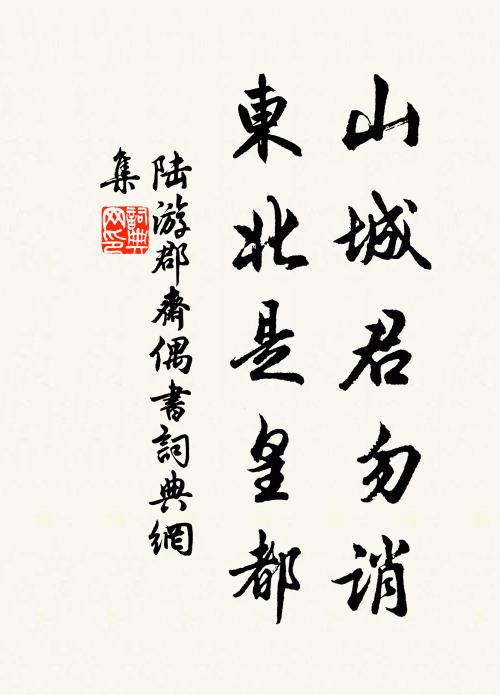 山城君勿誚
東北是皇都
陸游郡齋偶書詞典網
集
詞典
网印